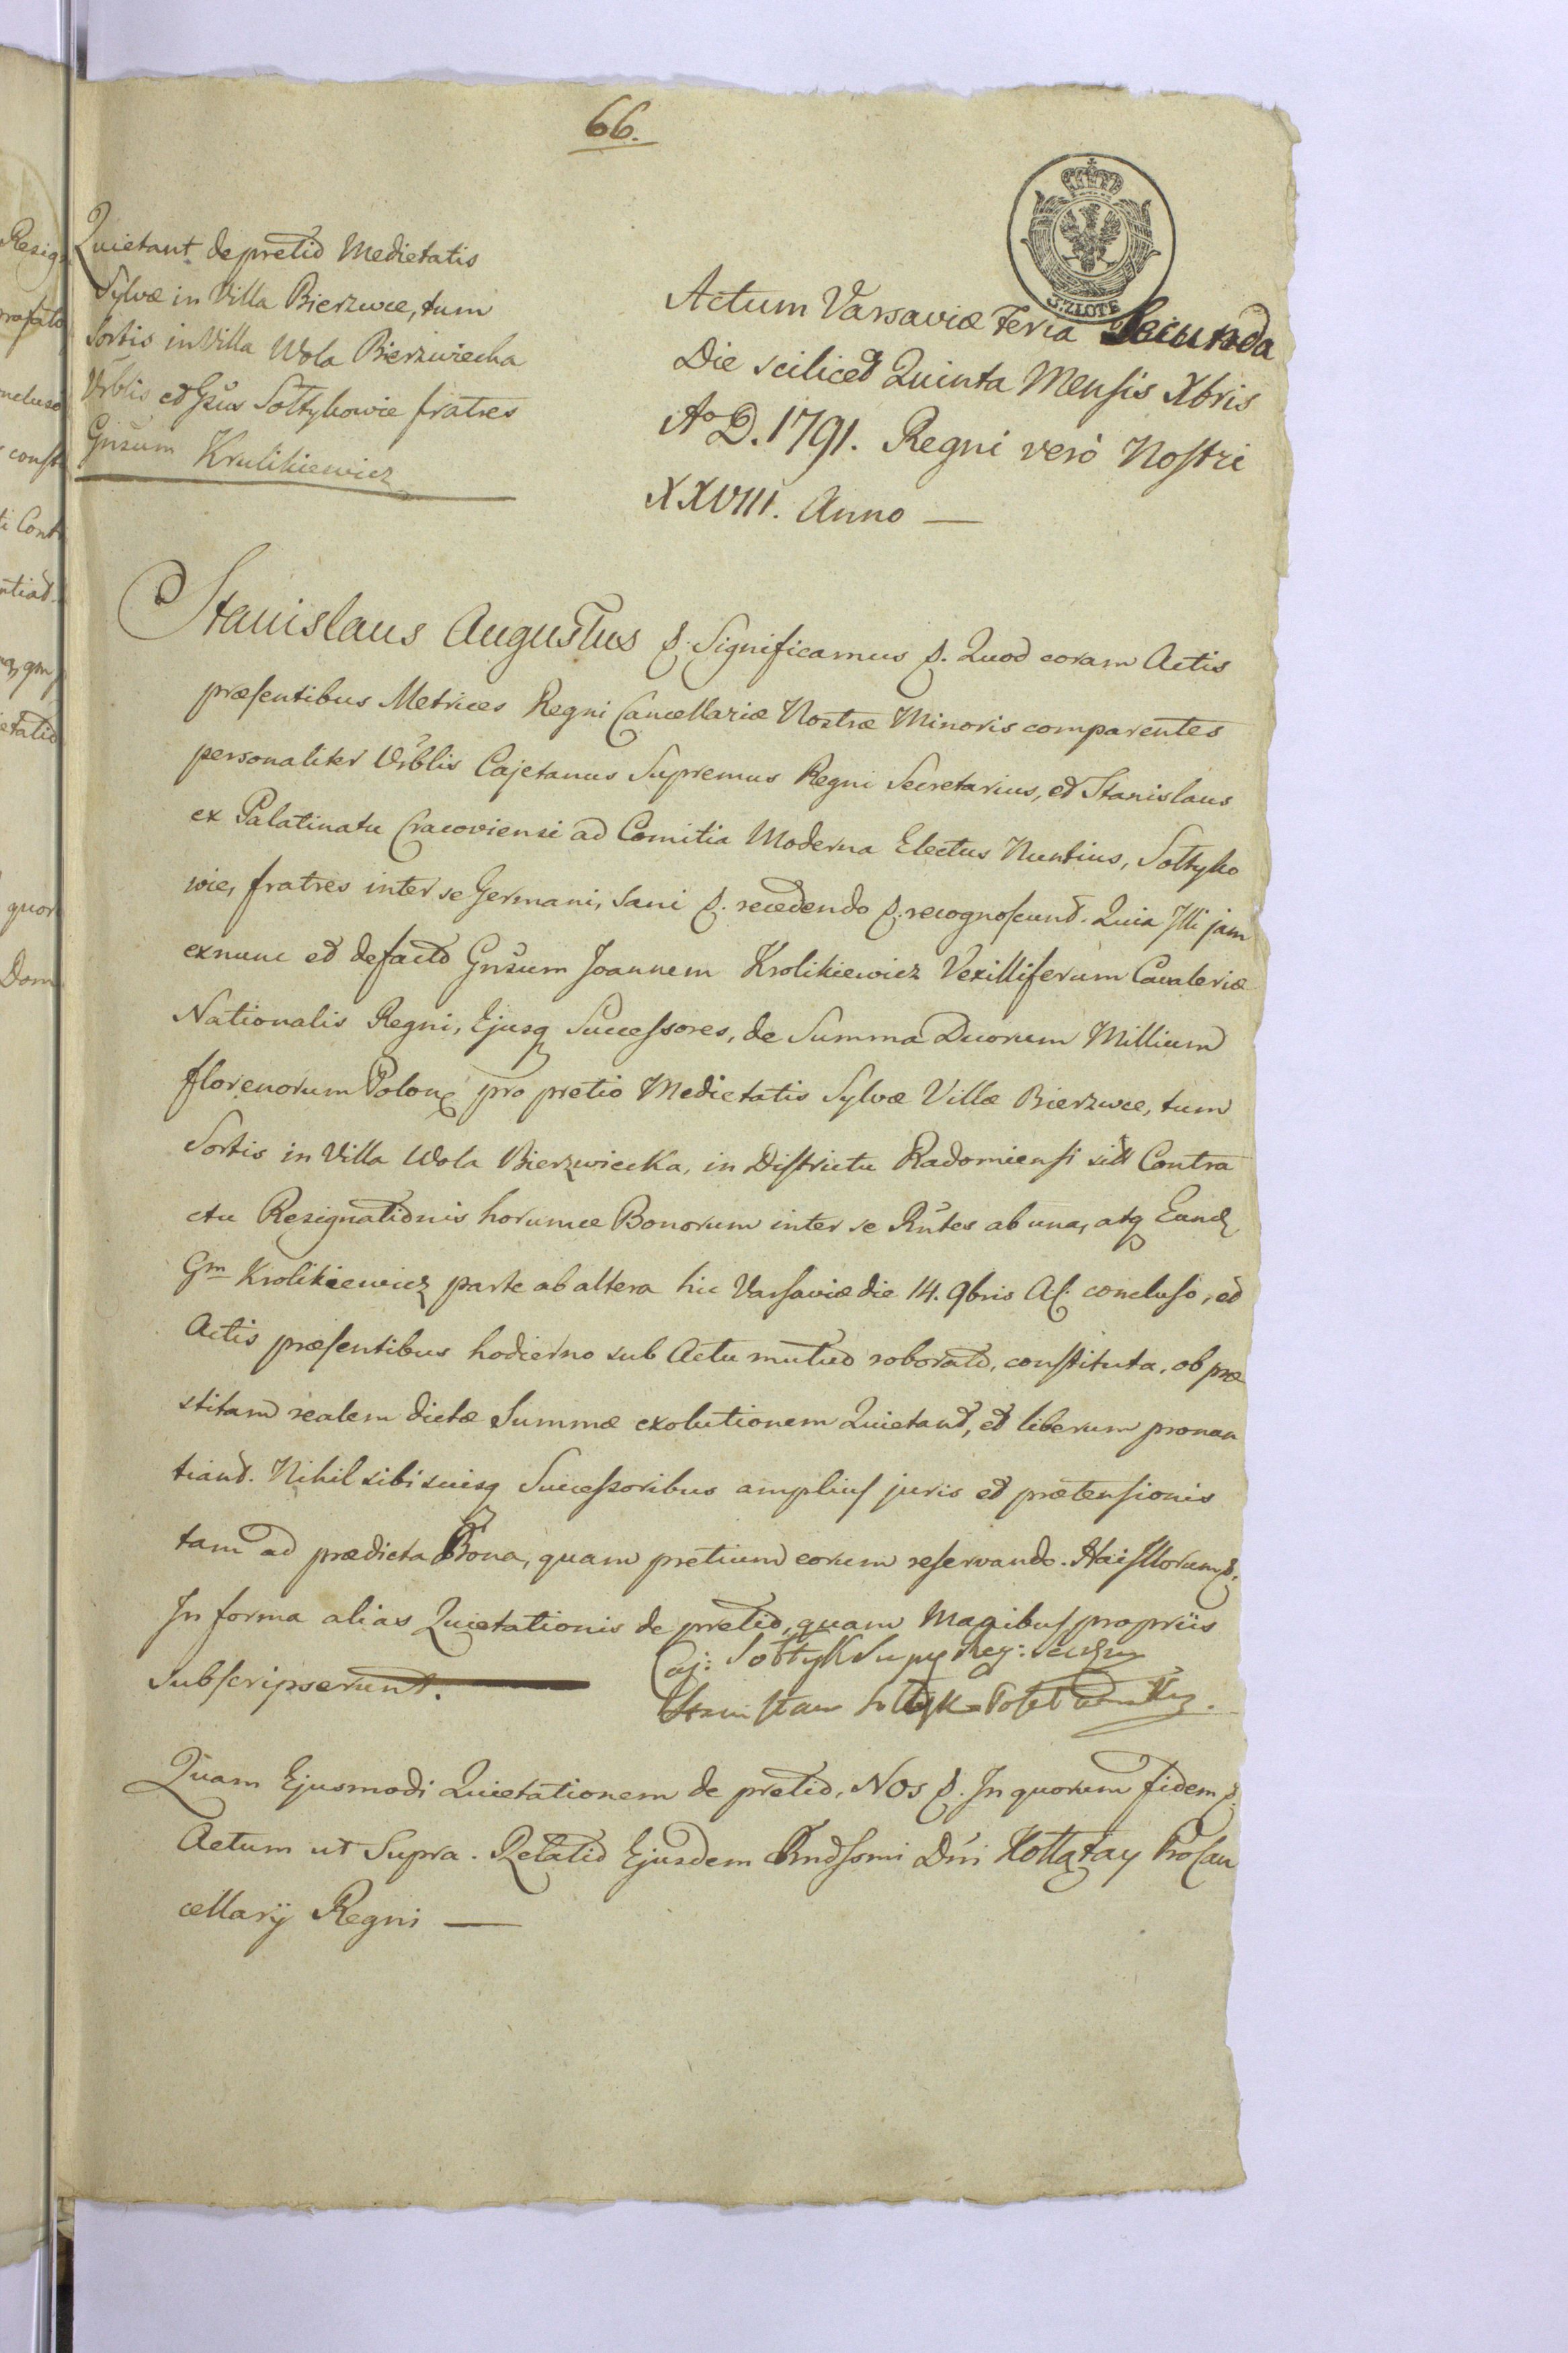 66.
Quietant de pretio Medietatis
Sylvæ in Villa Bierzwce, tum
Sortis in Villa Wola Bierzwiecka
Urblis et Gsus Sołtykowie fratres
Gnsum Krulikiewicz
3. ZŁOTE
Actum Varsaviæ Feria Secunda
Die scilicet Quinta Mensis Xbris
Aº D. 1791. Regni verò Nostri
XXVIII. Anno —
Stanislaus Augustus &. Significamus &. Quod coram Actis
præsentibus Metrices Regni Cancellariæ Nostræ Minoris comparentes
personaliter Urblis Cajetanus Supremus Regni Secretarius, et Stanislaus
ex Palatinatu Cracoviensi ad Comitia Moderna Electus Nuntius, Sołtyko
wie, fratres inter se Germani, sani &. recedendo &. recognoscunt. Quia Illi jam
exnunc et defacto Gnsum Joannem Krolikiewicz Vexilliferum Cavaleriæ
Nationalis Regni, Ejusq Successores, de Summa Duorum Millium
florenorum Polon pro pretio Medietatis Sylvæ Villæ Bierzwce, tum
Sortis in Villa Wola Bierzwiecka, in Districtu Radomiensi sitt Contra
ctu Resignationis horumce Bonorum inter se Rntes ab una, atq Eund
Gm Krolikiewicz parte ab altera hic Varsaviæ die 14. 9bris A. concluso, et
Actis præsentibus hodierno sub Actu mutuo roborato, constituta, ob præ
stitam realem dictæ Summæ exolutionem Quietant, et liberum pronun
tiant. Nihil sibi suisq Successoribus amplius juris et prætensionis
tam ad prædicta Bona, quam pretium eorum reservando. Hac Illorum &.
In forma alias Quietationis de pretio, quam Manibus propriis
subscripserunt.
Caj: Sołtyk Supr Reg:
Stanisław Sołtyk Poseł
Quam Ejusmodi Quietationem de pretio, Nos &. In quorum fidem &.
Actum ut Supra. Relatio Ejusdem Rndssmi Dni Kołłątay ProCan
cellarij Regni —
Resig
concluso
const
quor
Dom